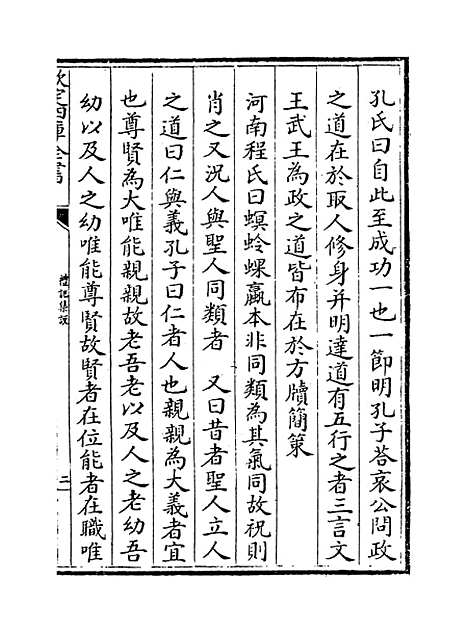 孔氏曰自此至成功一也一節明孔子荅哀公問政
之道在於取人修身并明達道有五行之者三言文
王武王為政之道皆布在於方牘簡策
河南程氏曰螟蛉蜾蠃本非同類為其氣同故祝則
肖之又況人與聖人同類者　又曰昔者聖人立人
之道曰仁與義孔子曰仁者人也親親為大義者宜
也尊賢為大唯能親親故老吾老以及人之老幼吾
幼以及人之幼唯能尊賢故賢者在位能者在職唯
欽定四庫全書
禮記集說
二